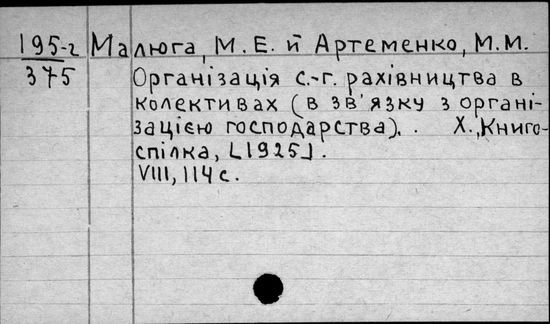 195-г Малюга, М. Е. й Артеменко, М.М.
375 Організація с.-г. рахівництва в
колективах (в зв'язку з органі-
зацією господарства). . Х., Книго-
спілка, [1925].
VIII, 114 с.